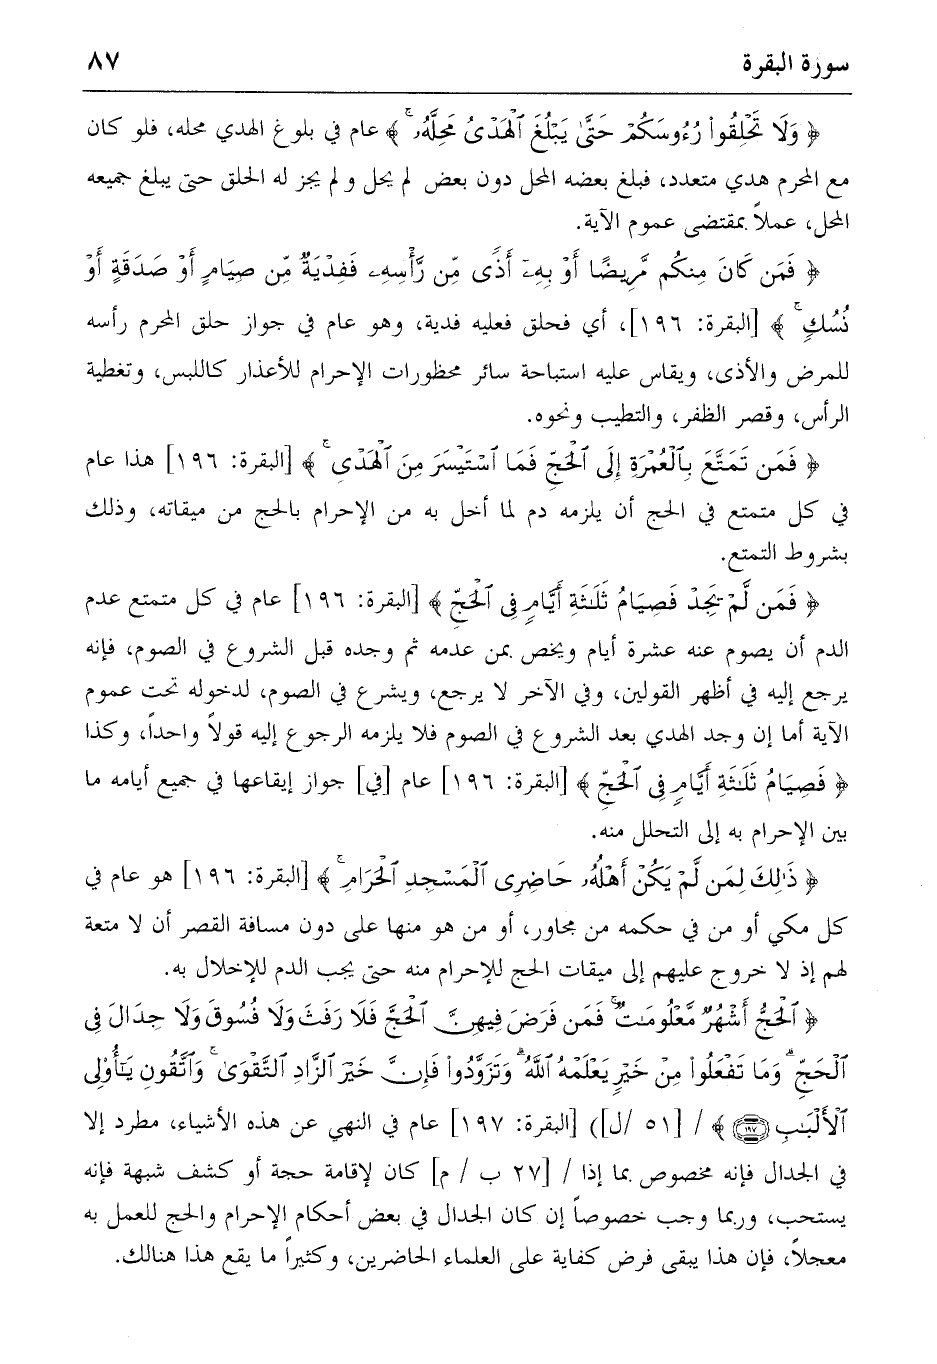 سورة البقرة ٨٧
﴿ وَلَا تَحْلِقُوا۟ رُءُوسَكُمْ حَتَّىٰ يَبْلُغَ ٱلْهَدْىُ مَحِلَّهُۥ ۚ ﴾ عام في بلوغ الهدي محله، فلو كان
مع المحرم هدي متعدد، فبلغ بعضه المحل دون بعض لم يحل و لم يجز له الحلق حتى يبلغ جميعه
المحل، عملاً بمقتضى عموم الآية.
﴿ فَمَن كَانَ مِنكُم مَّرِيضًا أَوْ بِهِۦٓ أَذًى مِّن رَّأْسِهِۦ فَفِدْيَةٌ مِّن صِيَامٍ أَوْ صَدَقَةٍ أَوْ
نُسُكٍ ۚ ﴾ [البقرة: ١٩٦]، أي فحلق فعليه فدية، وهو عام في جواز حلق المحرم رأسه
للمرض والأذى، ويقاس عليه استباحة سائر محظورات الإحرام للأعذار كاللبس، وتغطية
الرأس، وقصر الظفر، والتطيب ونحوه.
﴿ فَمَن تَمَتَّعَ بِٱلْعُمْرَةِ إِلَى ٱلْحَجِّ فَمَا ٱسْتَيْسَرَ مِنَ ٱلْهَدْىِ ۚ ﴾ [البقرة: ١٩٦] هذا عام
في كل متمتع في الحج أن يلزمه دم لما أخل به من الإحرام بالحج من ميقاته، وذلك
بشروط التمتع.
﴿ فَمَن لَّمْ يَجِدْ فَصِيَامُ ثَلَٰثَةِ أَيَّامٍ فِى ٱلْحَجِّ ﴾ [البقرة: ١٩٦] عام في كل متمتع عدم
الدم أن يصوم عنه عشرة أيام ويخص بمن عدمه ثم وجده قبل الشروع في الصوم، فإنه
يرجع إليه في أظهر القولين، وفي الآخر لا يرجع، ويشرع في الصوم، لدخوله تحت عموم
الآية أما إن وجد الهدي بعد الشروع في الصوم فلا يلزمه الرجوع إليه قولاً واحداً، وكذا
﴿ فَصِيَامُ ثَلَٰثَةِ أَيَّامٍ فِى ٱلْحَجِّ ﴾ [البقرة: ١٩٦] عام [في] جواز إيقاعها في جميع أيامه ما
بين الإحرام به إلى التحلل منه.
﴿ ذَٰلِكَ لِمَن لَّمْ يَكُنْ أَهْلُهُۥ حَاضِرِى ٱلْمَسْجِدِ ٱلْحَرَامِ ۚ ﴾ [البقرة: ١٩٦] هو عام في
كل مكي أو من في حكمه من مجاور، أو من هو منها على دون مسافة القصر أن لا متعة
لهم إذ لا خروج عليهم إلى ميقات الحج للإحرام منه حتى يجب الدم للإخلال به.
﴿ ٱلْحَجُّ أَشْهُرٌ مَّعْلُومَٰتٌ ۚ فَمَن فَرَضَ فِيهِنَّ ٱلْحَجَّ فَلَا رَفَثَ وَلَا فُسُوقَ وَلَا جِدَالَ فِى
ٱلْحَجِّ ۗ وَمَا تَفْعَلُوا۟ مِنْ خَيْرٍ يَعْلَمْهُ ٱللَّهُ ۗ وَتَزَوَّدُوا۟ فَإِنَّ خَيْرَ ٱلزَّادِ ٱلتَّقْوَىٰ ۚ وَٱتَّقُونِ يَٰٓأُو۟لِى
ٱلْأَلْبَٰبِ ١٩٧ ﴾ / [٥١ /ل]) [البقرة: ١٩٧] عام في النهي عن هذه الأشياء، مطرد إلا
في الجدال فإنه مخصوص بما إذا / [٢٧ ب / م] كان لإقامة حجة أو كشف شبهة فإنه
يستحب، وربما وجب خصوصاً إن كان الجدال في بعض أحكام الإحرام والحج للعمل به
معجلاً، فإن هذا يبقى فرض كفاية على العلماء الحاضرين، وكثيراً ما يقع هذا هنالك.